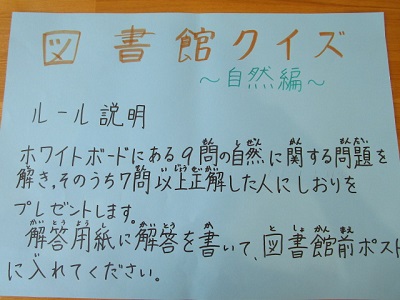 図書館クイズ
～自然編～
ルール説明
ホワイトボードにある9問の自然に関する問題を
解き,そのうち7問以上正解した人にしおりを
プレゼントします。
解答用紙に解答を書いて、図書館前ポスト
に入れてください。